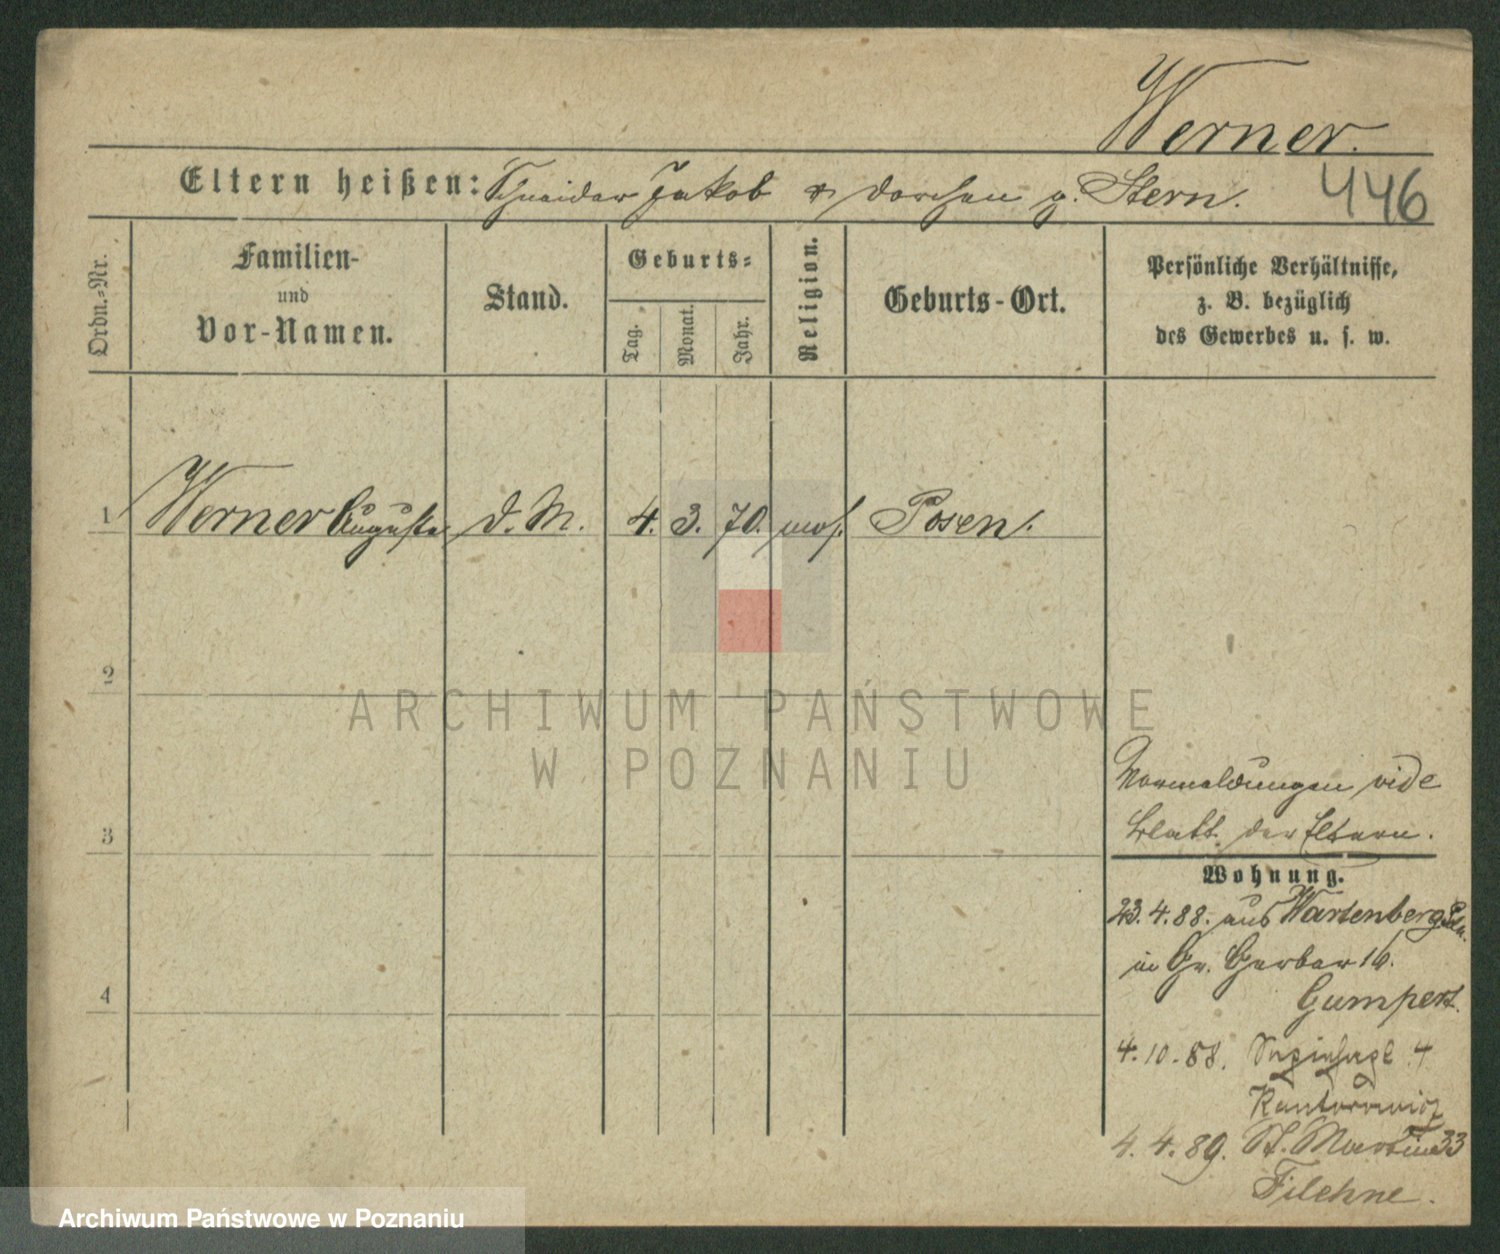 Werner.
Eltern heißen: Schneider Jakob & Dorchen g. Stern.
446
Ordn.-Nr.
Familien-
und
Vor-Namen.
Stand.
Geburts-
Tag.
Monat.
Jahr.
Religion.
Geburts-Ort.
Persönliche Verhältnisse,
z. B. bezüglich
des Gewerbes u. s. w.
1 Werner Auguste d. M. 4. 3. 70. mos. Posen.
2
3
4
Vormeldungen vide
Blatt der Eltern.
Wohnung.
23.4.88. aus Wartenberg
in Gr. Gerber 16.
Gumpert.
4.10.88. 4
Kantorowicz
4. 4. 89. St. Martin 33
Filehne.
ARCHIWUM PAŃSTWOWE
W POZNANIU
Archiwum Państwowe w Poznaniu